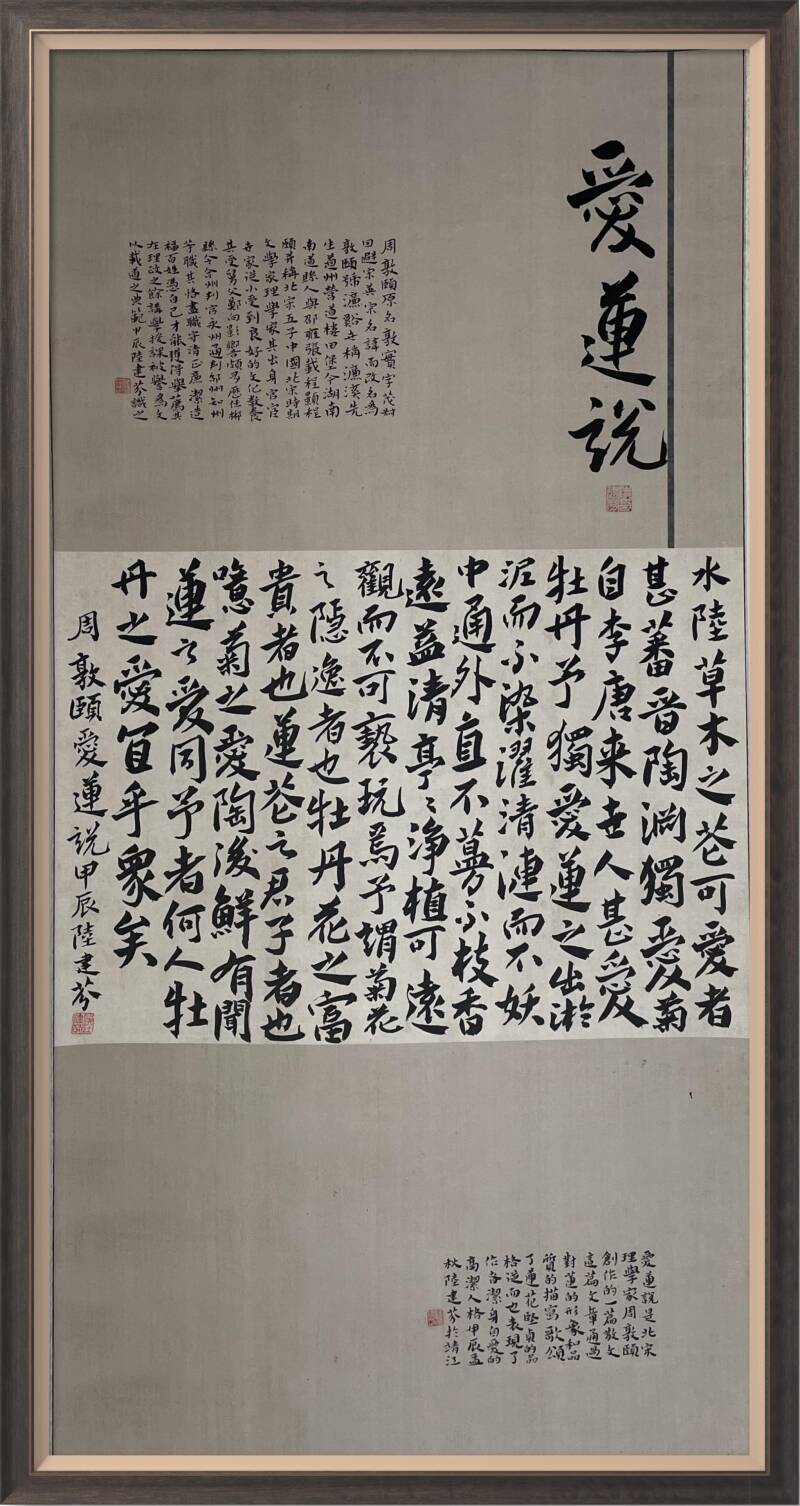 愛蓮說
周敦頤原名敦實字茂叔
因避宋英宗名諱而改名為
敦頤號濂谿世稱濂溪先
生道州營道樓田堡今湖南
南道縣人與邵雍張載程顥程
頤并稱北宋五子中國北宋時期
文學家理學家其出身官宦
世家從小受到良好的文化教養
其受舅父鄭向影響頗多歷任郴
縣令合州判官永州通判邵州知州
等職其恪盡職守清正廉潔造
福百姓憑自己才能獲得舉薦其
在理政之餘講學授課被譽為文
以載道之典範甲辰陸建芬識之
水陸草木之花可愛者
甚蕃晉陶淵獨愛菊
自李唐来世人甚愛
牡丹予獨愛蓮之出淤
泥而不染濯清漣而不妖
中通外直不蔓不枝香
遠益清亭〻淨植可遠
觀而不可褻玩焉予謂菊花
之隱逸者也牡丹花之富
貴者也蓮花之君子者也
噫菊之愛陶後鮮有聞
蓮之愛同予者何人牡
丹之愛宜乎衆矣
周敦頤愛蓮說甲辰陸建芬
愛蓮說是北宋
理學家周敦頤
創作的一篇散文
這篇文章通過
對蓮的形象和品
質的描寫歌頌
了蓮花堅貞的品
格從而也表現了
作者潔身自愛的
高潔人格甲辰孟
秋陸建芬於靖江